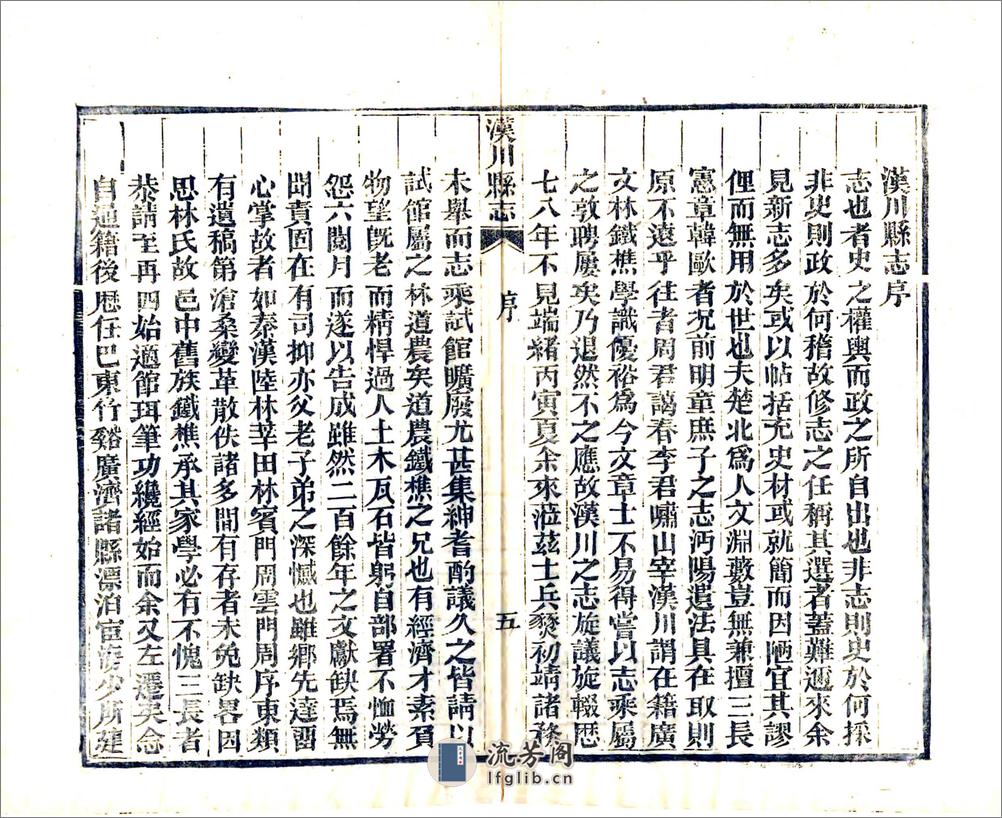 漢川縣志序
志也者史之權輿而政之所自出也非志則史於何採
非史則政於何稽故修志之任稱其選者蓋難邇來余
見新志多矣或以帖括充史材或就簡而因陋宜其謬
俚而無用於世也夫楚北爲人文淵藪豈無兼擅三長
憲章韓歐者況前明童庶子之志沔陽遺法具在取則
原不遠乎往者周君謁春李君嘯山宰漢川謂在籍廣
文林鐵樵學識優裕爲今文章士不易得嘗以志乘屬
之敦聘屢矣乃退然不之應故漢川之志旋議旋輟歷
七八年不見端緒丙寅夏余來涖茲土兵燹初靖諸務
漢川縣志
序
五
未舉而志乘試館曠廢尤甚集紳耆酌議久之皆請以
試館屬之林道農矣道農鐵樵之兄也有經濟才素負
物望旣老而精悍過人土木瓦石皆躬自部署不恤勞
怨六閱月而遂以告成雖然二百餘年之文獻缺焉無
聞責固在有司抑亦父老子弟之深憾也雖鄉先達畱
心掌故者如秦漢陸林莘田林賓門周雲門周序東類
有遺稿第滄桑變革散佚諸多間有存者未免缺畧因
思林氏故邑中舊族鐵樵承其家學必有不愧三長者
恭請至再四始適館珥筆功纔經始而余又左遷矣念
自通籍後歷任巴東竹谿廣濟諸縣漂泊宦海少所建
流芳阁
lfglib.cn